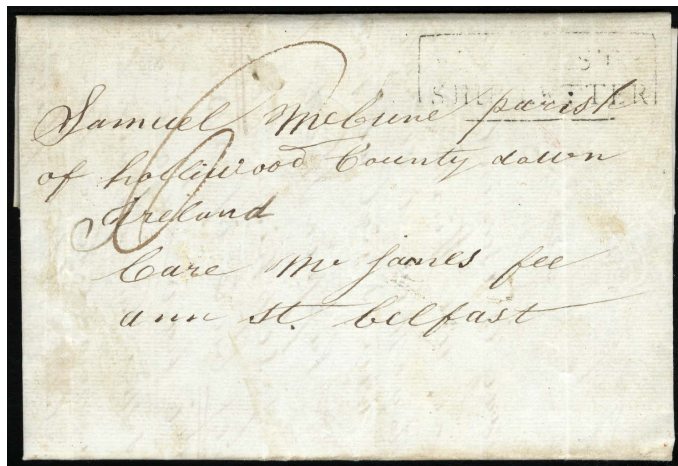 SHIP LETTER
Samuel McCune parish
of holliwood County down
Ireland
Care Mr James fee
ann st. belfast